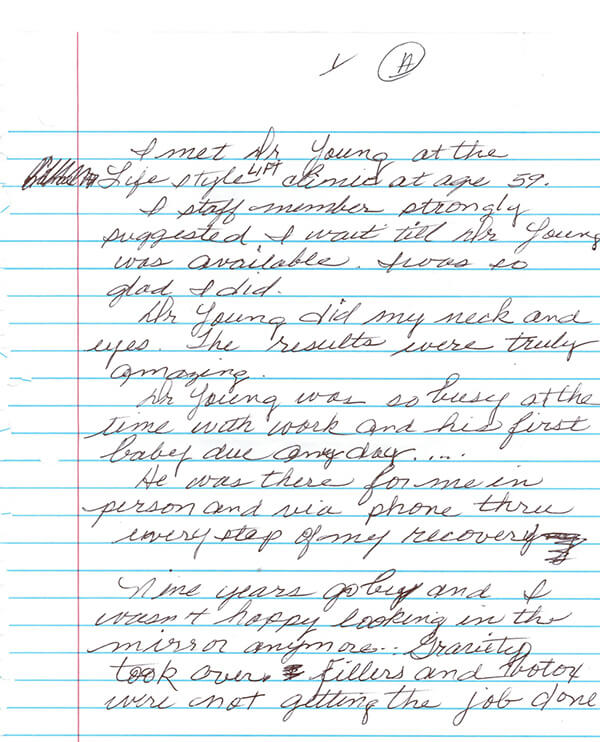 A
I met Dr Young at the
Life style LIFT clinic at age 59.
I staff member strongly
suggested I wait till Dr Young
was available. I was so
glad I did.
Dr Young did my neck and
eyes. The results were truly
amazing.
Dr Young was so busy at the
time with work and his first
baby due any day.....
He was there for me in
person and via phone thru
every step of my recovery
Nine years go by and I
wasn't happy looking in the
mirror anymore.. Graviety
took over. Fillers and botox
were not getting the job done